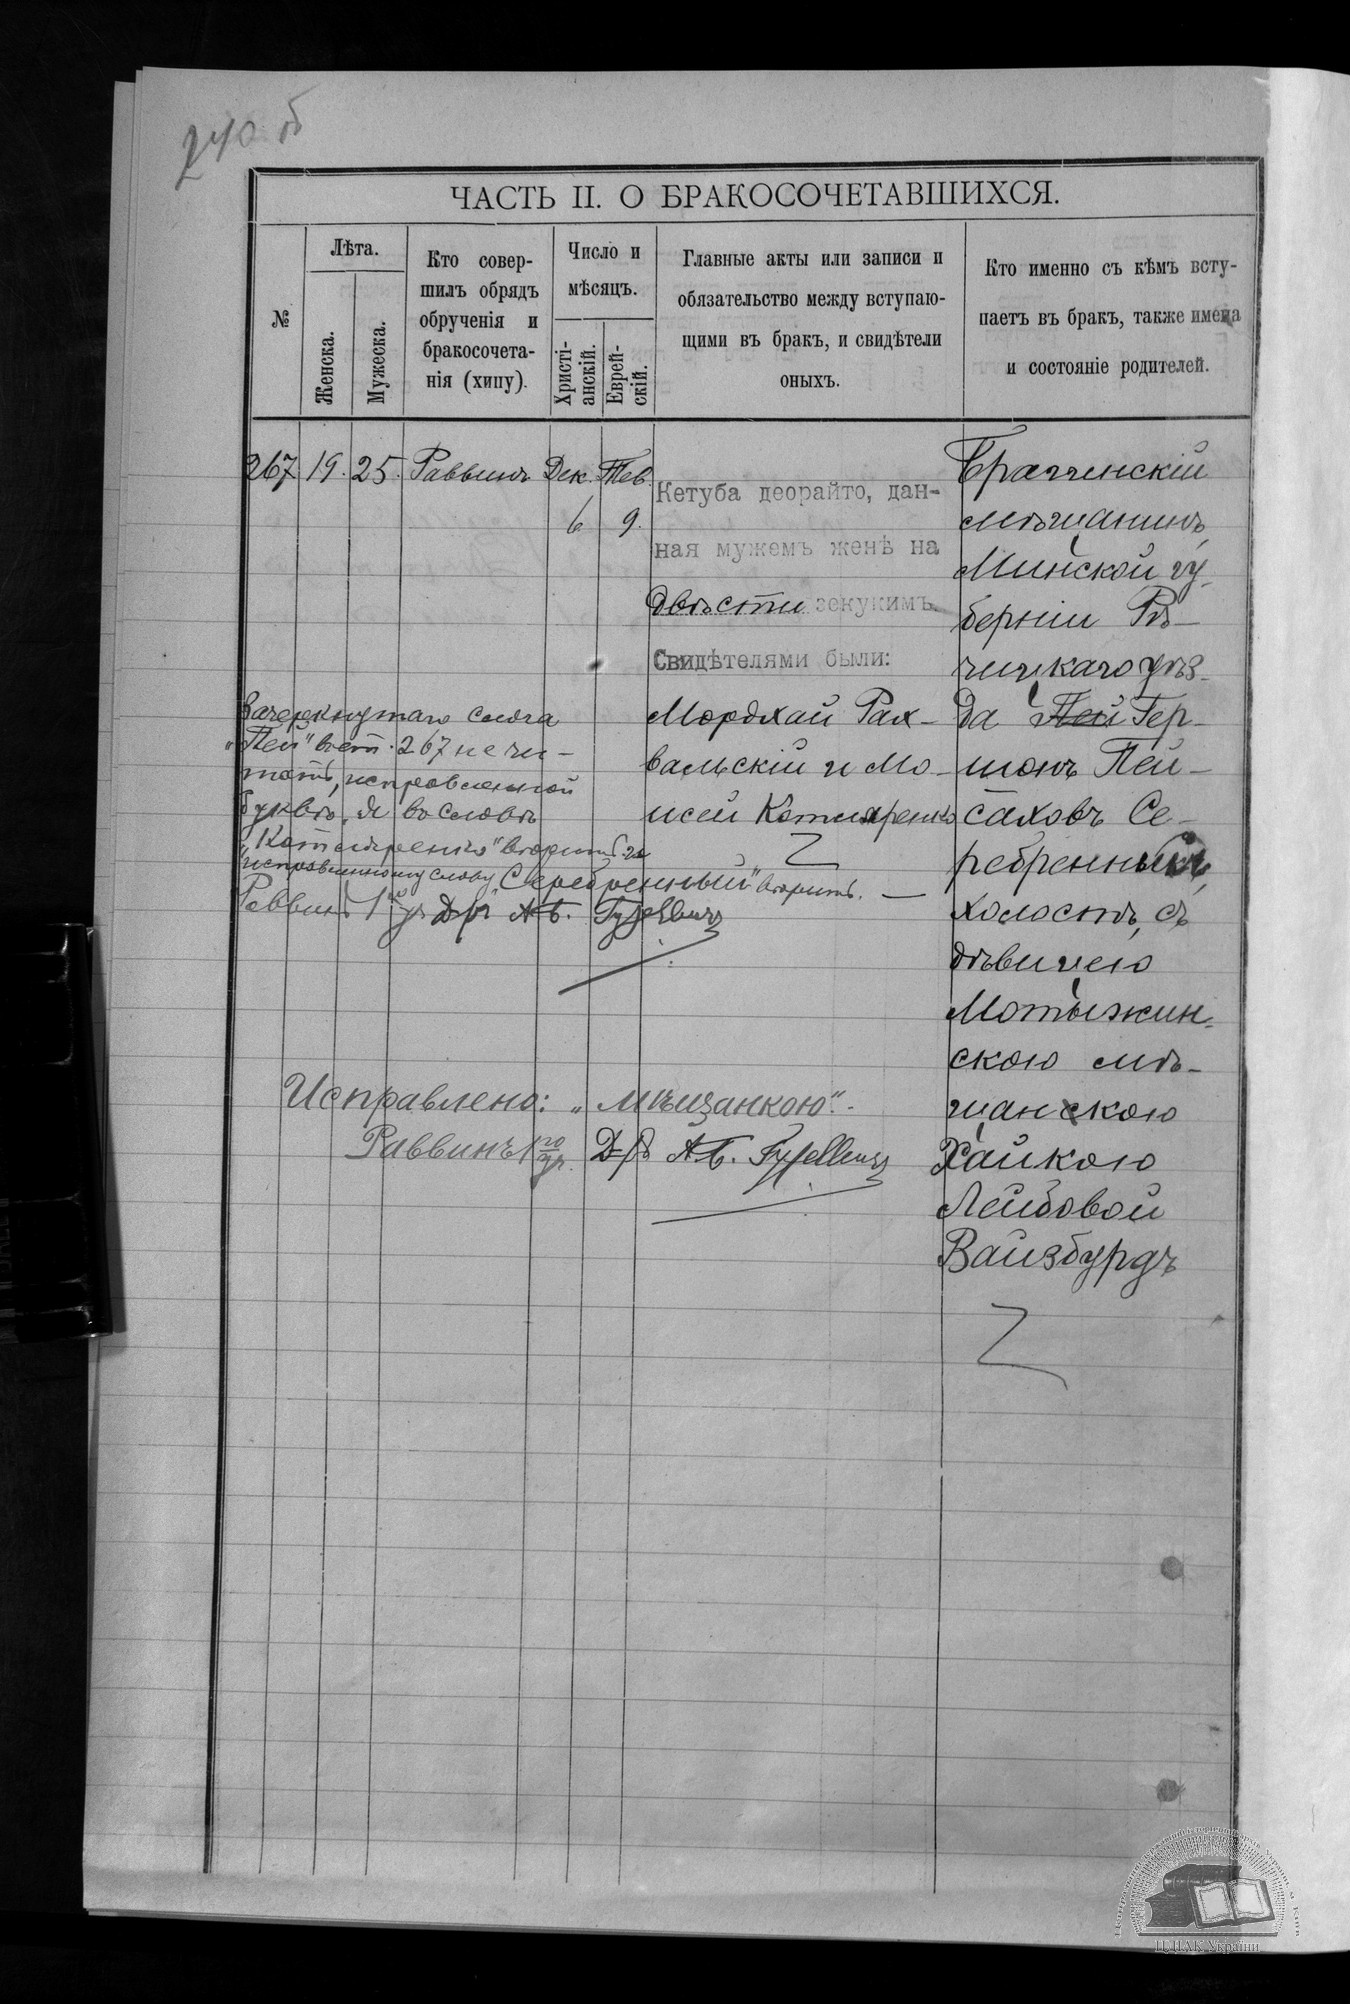 240 об
ЧАСТЬ II. О БРАКОСОЧЕТАВШИХСЯ.
№
Лѣта.
Женска.
Мужеска.
Кто совер-
шилъ обрядъ
обрученія и
бракосочета-
нія (хипу).
Число и
мѣсяцъ.
Христі-
анскій.
Еврей-
скій.
Главные акты или записи и
обязательство между вступаю-
щими въ бракъ, и свидѣтели
оныхъ.
Кто именно съ кѣмъ всту-
паетъ въ бракъ, также имена
и состояніе родителей.
267 19. 25. Раввинъ Дек. Тев.
6 9.
Кетуба деорайто, дан-
ная мужемъ женѣ на
двѣсти зекукимъ.
Свидѣтелями были:
Мордхай Рах-
вальскій и Мо-
исей Котляренко
мѣщанинъ,
Минской гу-
берніи Рѣ-
чицкаго уѣз-
да Пей Гер-
шонъ Пей-
саховъ Се-
ребренный,
холостъ, съ
дѣвицею
Мотыжин-
скою мѣ-
щанскою
Хайкою
Лейбовой
Вайзбурдъ
Зачеркнутаго слога
"Пей" въ ст. 267 не чи-
тать, исправленной
буквѣ "я" въ словѣ
"Котляренко" вѣрить и
исправленному слову "Серебренный" вѣрить. —
Раввинъ 1го уч. Д-ръ А.Б.
Исправлено: "мѣщанкою".-
Раввинъ 1го уч. Д-ръ А.Б.
ЦДІАК України